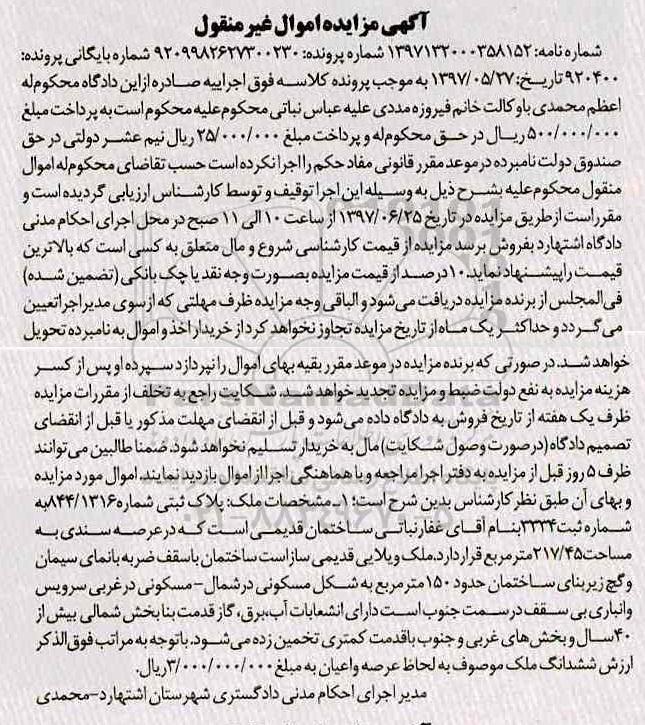 آگهی مزایده اموال غیر منقول
شماره نامه: ۱۳۹۷۱۳۲۰۰۰۳۵۸۱۵۲ شماره پرونده: ۹۲۰۹۹۸۲۶۲۷۳۰۰۲۳۰ شماره بایگانی پرونده:
۹۲۰۴۰۰ تاریخ: ۱۳۹۷/۰۵/۲۷ به موجب پرونده کلاسه فوق اجراییه صادره از این دادگاه محکوم‌له
اعظم محمدی با وکالت خانم فیروزه مددی علیه عباس نباتی محکوم علیه محکوم است به پرداخت مبلغ
۵۰۰/۰۰۰/۰۰۰ ریال در حق محکوم‌له و پرداخت مبلغ ۲۵/۰۰۰/۰۰۰ ریال نیم عشر دولتی در حق
صندوق دولت نامبرده در موعد مقرر قانونی مفاد حکم را اجرا نکرده است حسب تقاضای محکوم‌له اموال
منقول محکوم علیه بشرح ذیل به وسیله این اجرا توقیف و توسط کارشناس ارزیابی گردیده است و
مقرر است از طریق مزایده در تاریخ ۱۳۹۷/۰۶/۲۵ از ساعت ۱۰ الی ۱۱ صبح در محل اجرای احکام مدنی
دادگاه اشتهارد بفروش برسد مزایده از قیمت کارشناسی شروع و مال متعلق به کسی است که بالاترین
قیمت را پیشنهاد نماید. ۱۰ درصد از قیمت مزایده بصورت وجه نقد یا چک بانکی (تضمین شده)
فی‌المجلس از برنده مزایده دریافت می‌شود و الباقی وجه مزایده ظرف مهلتی که از سوی مدیر اجرا تعیین
می‌گردد و حداکثر یک ماه از تاریخ مزایده تجاوز نخواهد کرد از خریدار اخذ و اموال به نامبرده تحویل
خواهد شد. در صورتی که برنده مزایده در موعد مقرر بقیه بهای اموال را نپردازد سپرده او پس از کسر
هزینه مزایده به نفع دولت ضبط و مزایده تجدید خواهد شد. شکایت راجع به تخلف از مقررات مزایده
ظرف یک هفته از تاریخ فروش به دادگاه داده می‌شود و قبل از انقضای مهلت مذکور یا قبل از انقضای
تصمیم دادگاه (در صورت وصول شکایت) مال به خریدار تسلیم نخواهد شود. ضمنا طالبین می‌توانند
ظرف ۵ روز قبل از مزایده به دفتر اجرا مراجعه و با هماهنگی اجرا از اموال بازدید نمایند. اموال مورد مزایده
و بهای آن طبق نظر کارشناس بدین شرح است: ۱- مشخصات ملک: پلاک ثبتی شماره ۸۴۴/۱۳۱۶ به
شماره ثبت ۳۳۳۴ بنام آقای غفار نباتی ساختمان قدیمی است که در عرصه سندی به
مساحت ۲۱۷/۴۵ متر مربع قرار دارد. ملک ویلایی قدیمی ساز است ساختمان با سقف ضربه با نمای سیمان
و گچ زیر بنای ساختمان حدود ۱۵۰ متر مربع به شکل مسکونی در شمال - مسکونی در غربی سرویس
و انباری بی سقف در سمت جنوب است دارای انشعابات آب، برق، گاز قدمت بنا بخش شمالی بیش از
۴۰ سال و بخش های غربی و جنوب با قدمت کمتری تخمین زده می‌شود. با توجه به مراتب فوق الذکر
ارزش ششدانگ ملک موصوف به لحاظ عرصه و اعیان به مبلغ ۳/۰۰۰/۰۰۰/۰۰۰ ریال.
مدیر اجرای احکام مدنی دادگستری شهرستان اشتهارد - محمدی